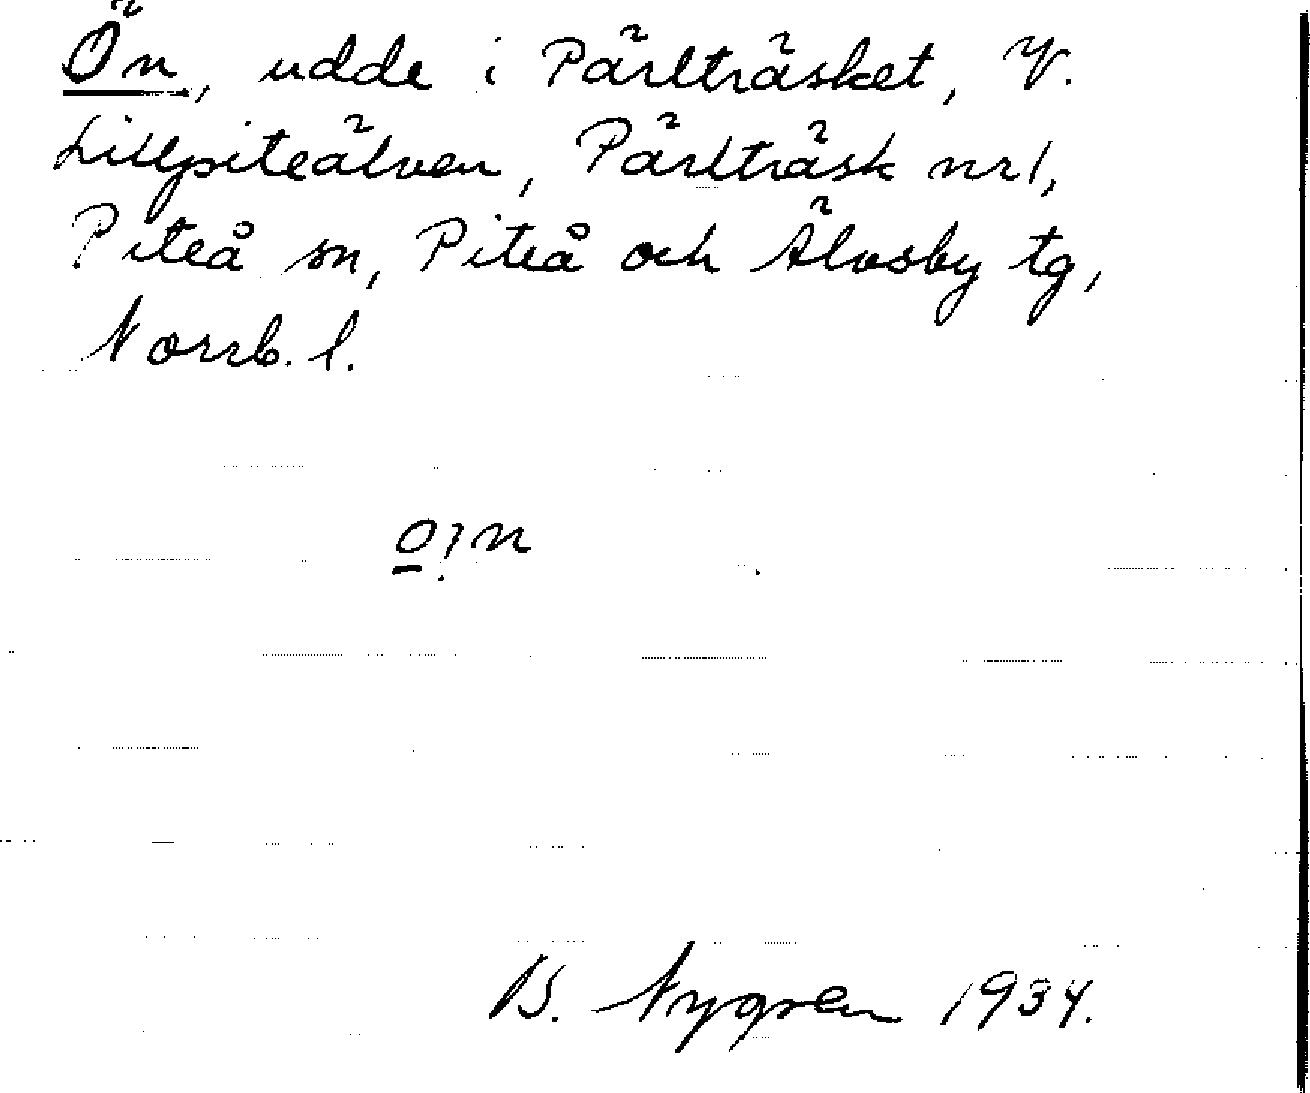 Ön, udde i Pärlträsket, V.
Lillpiteälven, Pärlträsk nr 1,
Piteå sn, Piteå och Älvsby tg,
Norrb. l.
o̲ʔn
B. Nygren 1934.